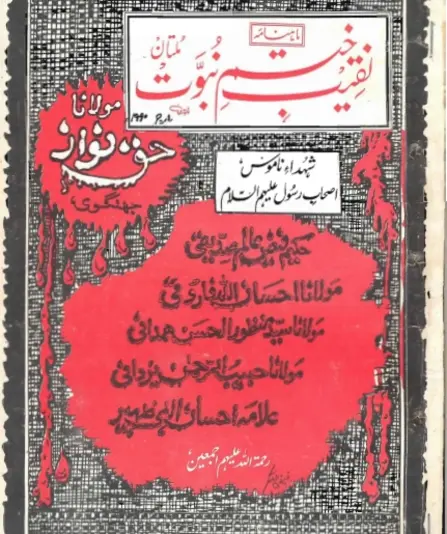 ماہنامہ
نقیبِ ختمِ نبوّت
ملتان
مارچ ۱۹۹۰ء
مولانا
حق نواز
جھنگوی
شہداءِ ناموس
اصحاب رسول علیہم السّلام
حکیم فیض عالم صدیقی
مولانا احسان اللہ فاروقی
مولانا سید منظور الحسن ہمدانی
مولانا حبیب الرحمٰن یزدانی
علامہ احسان الٰہی ظہیر
رحمۃ اللہ علیہم اجمعین